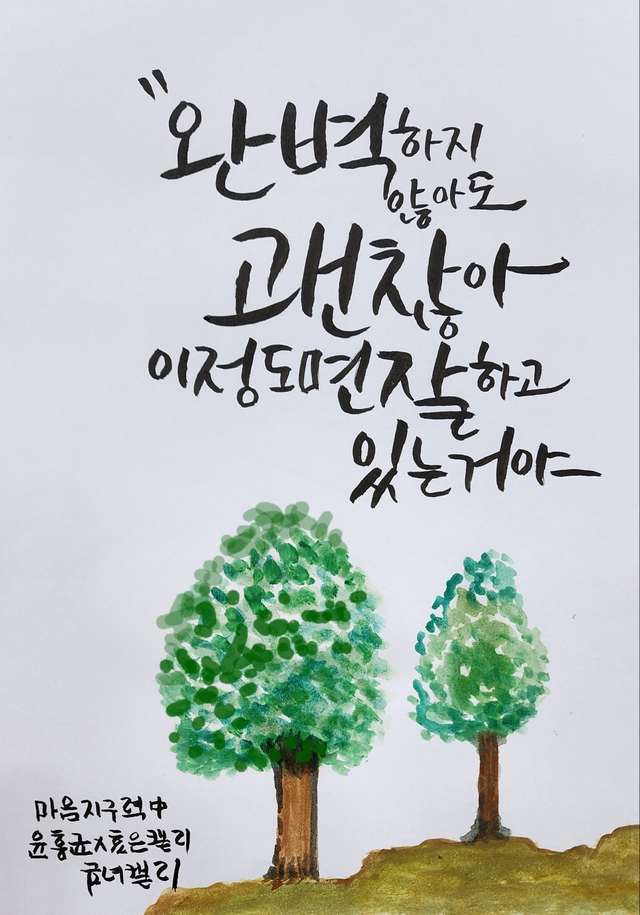 "완벽하지
않아도
괜찮아
이정도면 잘하고
있는거야
마음지구력中
윤홍균x효은캘리
금녀캘리